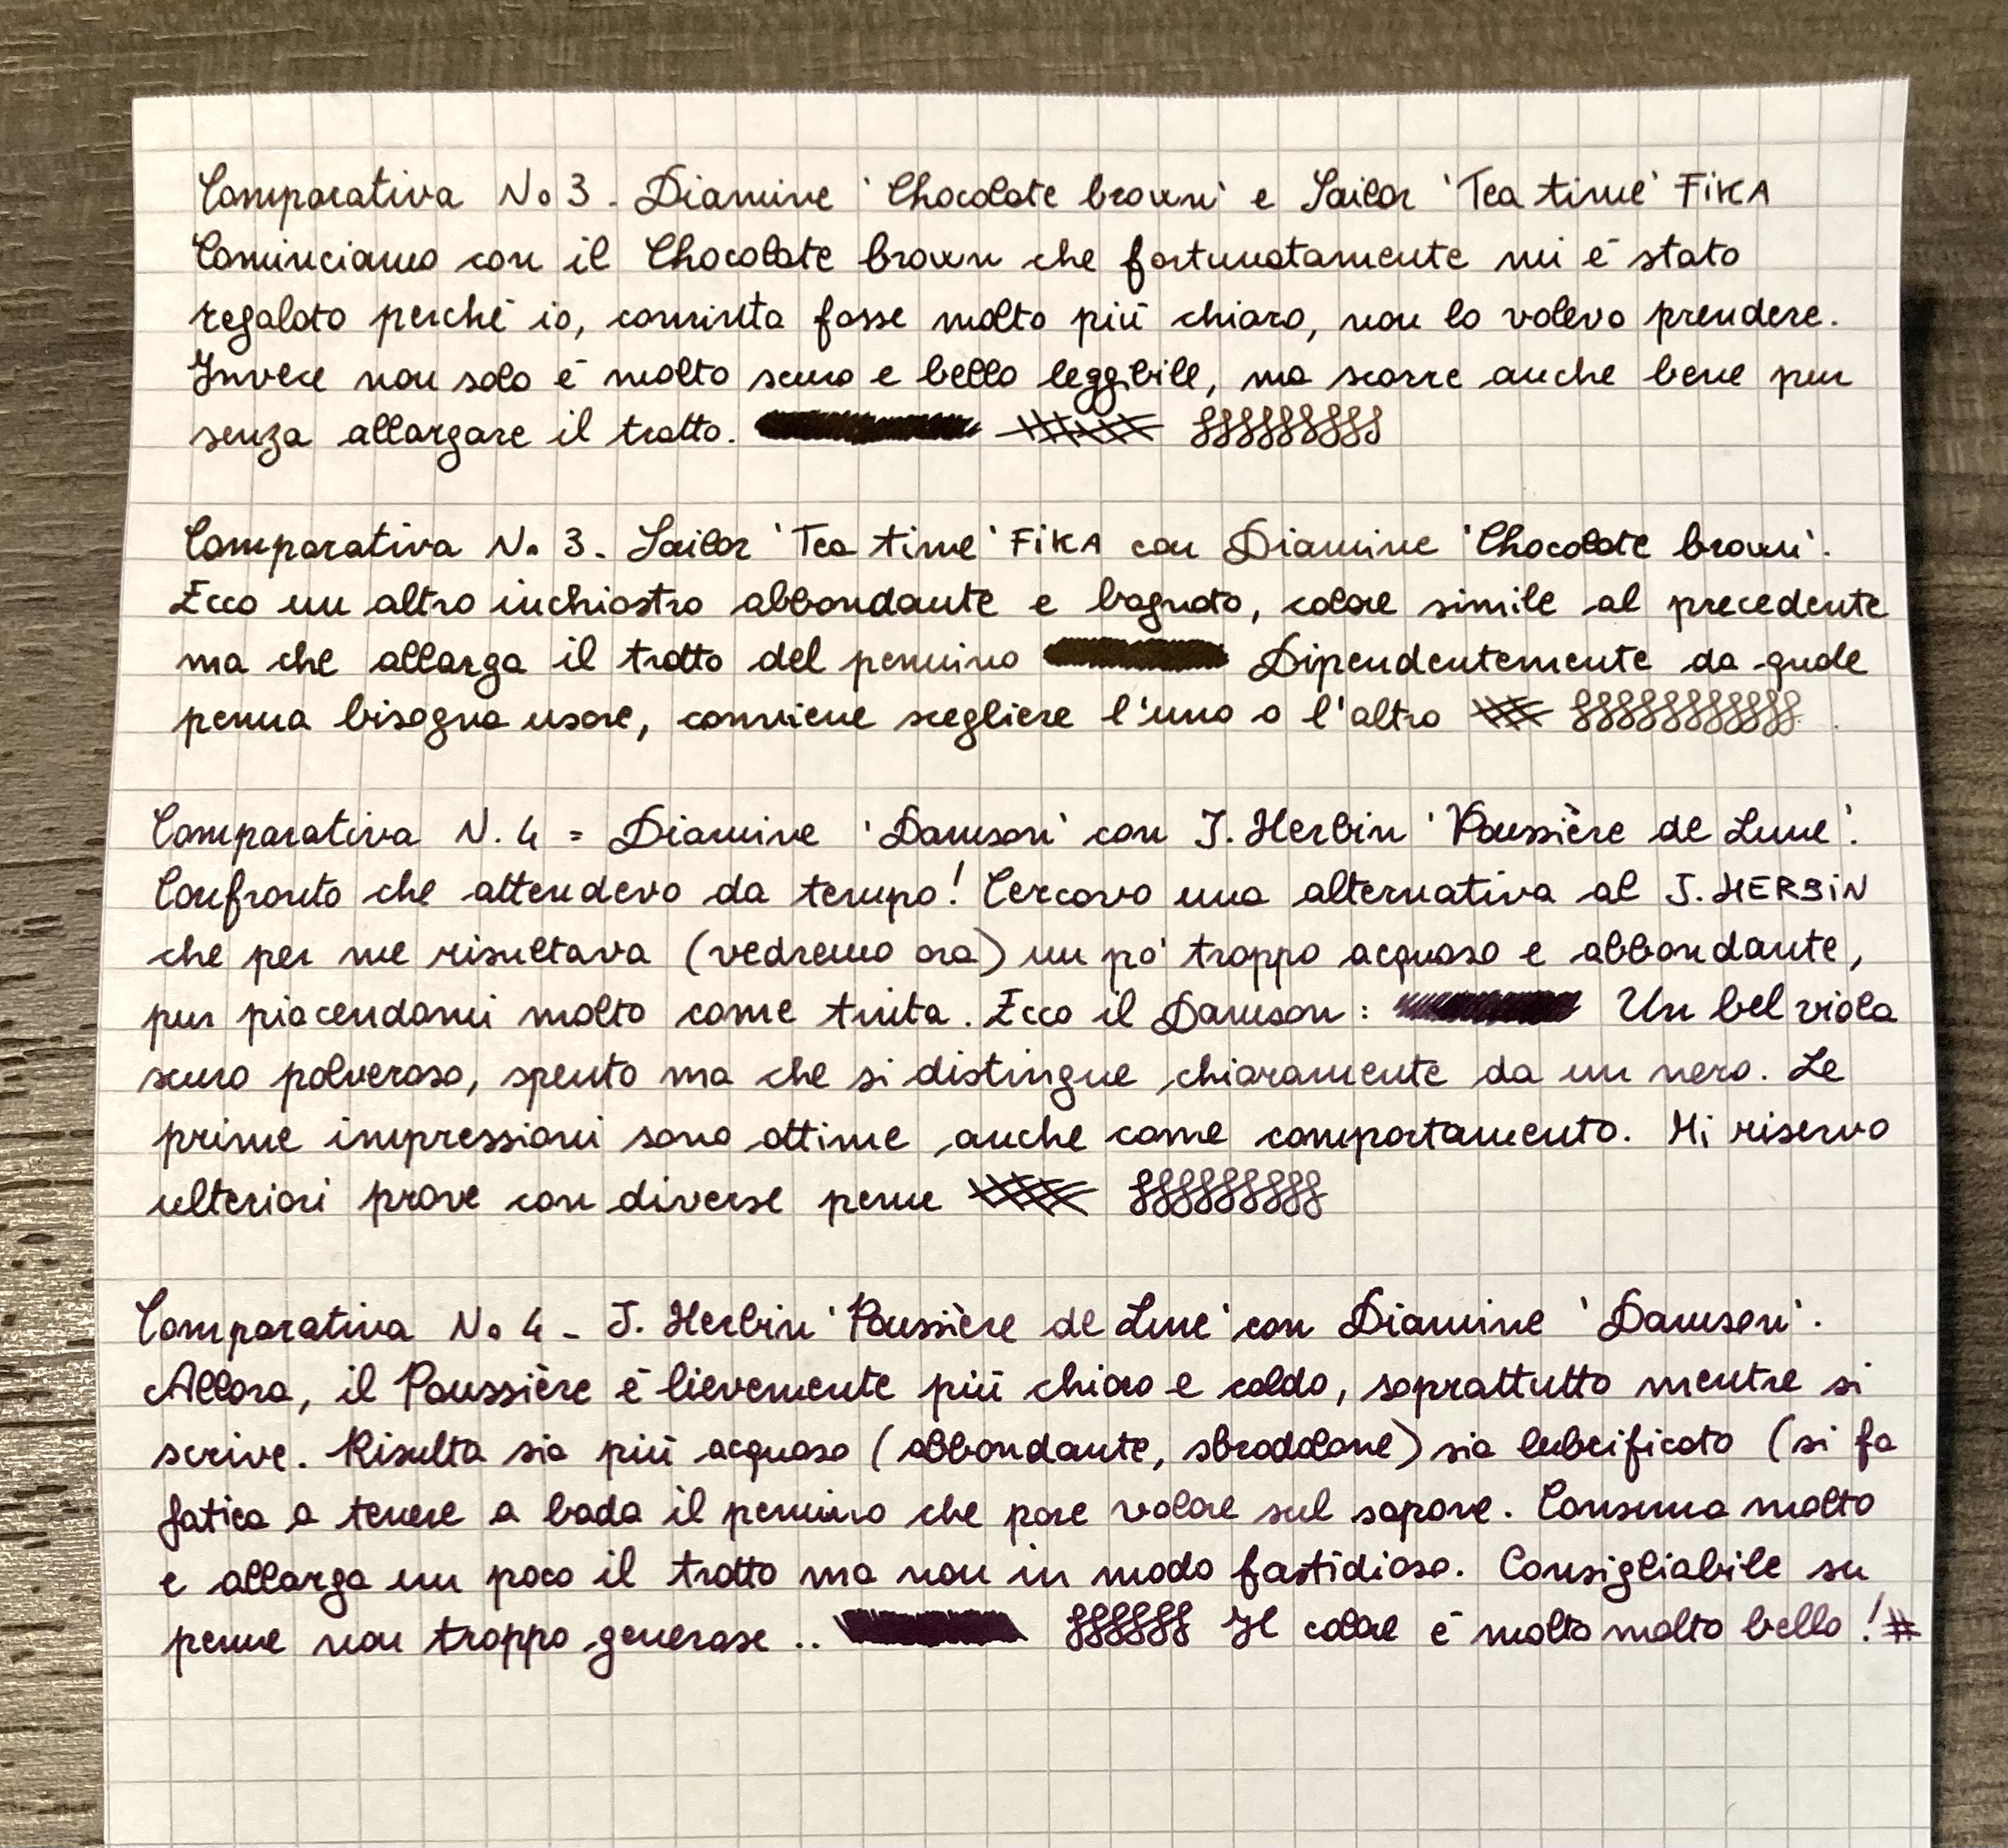 Comparativa No 3 - Diamine 'Chocolate brown' e Sailor 'Tea time' FiKA
Cominciamo con il Chocolate brown che fortunatamente mi è stato
regalato perché io, convinta fosse molto più chiaro, non lo volevo prendere.
Invece non solo è molto scuro e bello leggibile, ma scorre anche bene pur
senza allargare il tratto.
Comparativa No 3 - Sailor 'Tea time' FiKA con Diamine 'Chocolate brown'.
Ecco un altro inchiostro abbondante e bagnato, colore simile al precedente
ma che allarga il tratto del pennino Dipendentemente da quale
penna bisogna usare, conviene scegliere l'uno o l'altro
Comparativa N. 4 = Diamine 'Damson' con J. Herbin 'Poussière de Lune'.
Confronto che attendevo da tempo! Cercavo una alternativa al J. HERBiN
che per me risultava (vedremo ora) un po' troppo acquoso e abbondante,
pur piacendomi molto come tinta. Ecco il Damson: Un bel viola
scuro polveroso, spento ma che si distingue chiaramente da un nero. Le
prime impressioni sono ottime anche come comportamento. Mi riservo
ulteriori prove con diverse penne
Comparativa No 4 - J. Herbin 'Poussière de Lune' con Diamine 'Damson'.
Allora, il Poussière è lievemente più chiaro e caldo, soprattutto mentre si
scrive. Risulta sia più acquoso (abbondante, sbrodolone) sia lubrificato (si fa
fatica a tenere a bada il pennino che pare volare sul sapone. Consuma molto
e allarga un poco il tratto ma non in modo fastidioso. Consigliabile su
penne non troppo generose .. Il colore è molto molto bello! #